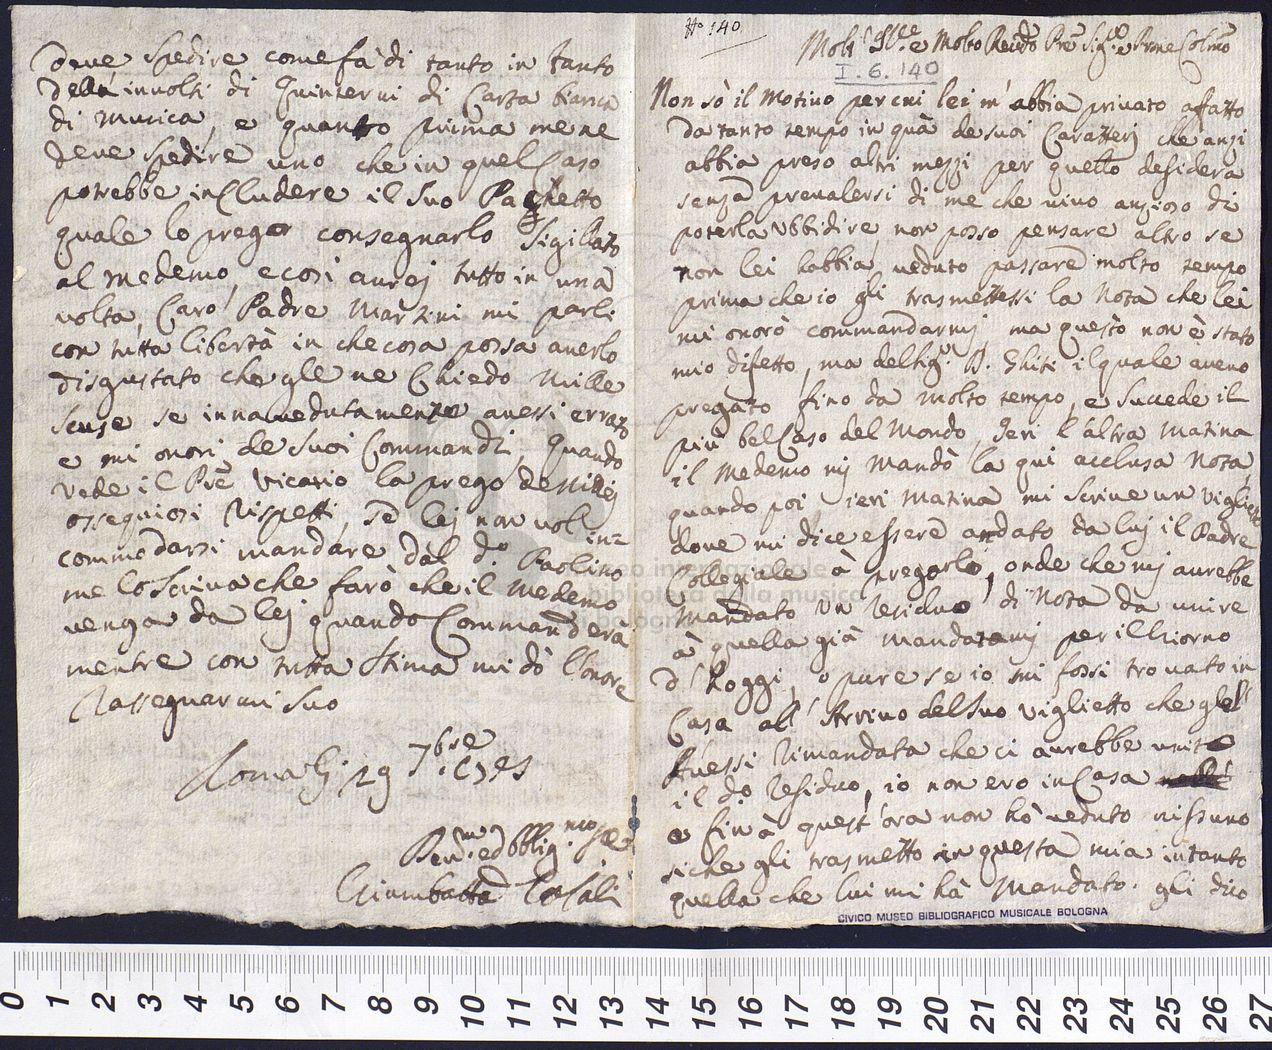 No 140
Molt' Ill.e e Molto Reu.do Pre Sig.e e Prone Colmo
I. 6. 140
Non sò il Motiuo per cui lei m'abbia priuato affatto
da tanto tempo in quà de suoi Caratterj che anzi
abbia preso altri mezzi per quello desidera
senza preualersi di me che uiuo anzioso di
poterla Vbbidire, non posso pensare altro se
non lei habbia ueduto passare molto tempo
prima che io gli trasmettessi la Nota che lei
mi onorò commandarmj, ma questo non è stato
mio difetto, ma del Sig.r D. Ghiti il quale aueuo
pregato fino da molto tempo, e succede il
più bel Caso del Mondo, Jeri l'altra Matina
il Medemo mj Mandò la qui acclusa Nota,
quando poi ieri Matina mi scriue un Vigliett
doue mi dice essere andato da luj il Padre
Collegiale à pregarlo, onde che mj aurebbe
Mandato Vn residuo di Nota da unire
à quella già mandatamj per il Giorno
d' Hoggi, o pure se io mi fossi trouato in
Casa all' Arriuo del suo Viglietto che gle l'
Auessi rimandata che ci aurebbe unito
il do residuo, io non ero in Casa
e fin à quest' ora non hò ueduto nissuno
siche gli trasmetto in questa mia intanto
quella che lui mi hà Mandato. gli dico
CIVICO MUSEO BIBLIOGRAFICO MUSICALE BOLOGNA
deue spedire come fà di tanto in tanto
delli inuolti di Quinterni di Carta bianca
di musica, e quanto prima me ne
deue spedire uno che in quel Caso
potrebbe includere il suo Pachetto
quale lo prego consegnarlo Sigillato
al medemo, e cosi aurej tutto in una
uolta, Caro Padre Martini mi parli
con tutta libertà in che cosa possa auerlo
disgustato che gle ne Chiedo Mille
scuse se innauedutamente auessi errato
e mi onori de suoi Commandi, quando
Vede il Pre Vicario la prego de Miej
ossequiosi rispetti, se lej non uol in=
commodarsi mandare dal do Paolino
me lo scriua che farò che il medemo
uenga da lej quando Commanderà
mentre con tutta stima mi dò l'onore
Rassegnarmi suo
Roma li 29 7bre
museo internazionale
biblioteca della musica
di bologna
Giambatta Casali
0 1 2 3 4 5 6 7 8 9 10 11 12 13 14 15 16 17 18 19 20 21 22 23 24 25 26 27